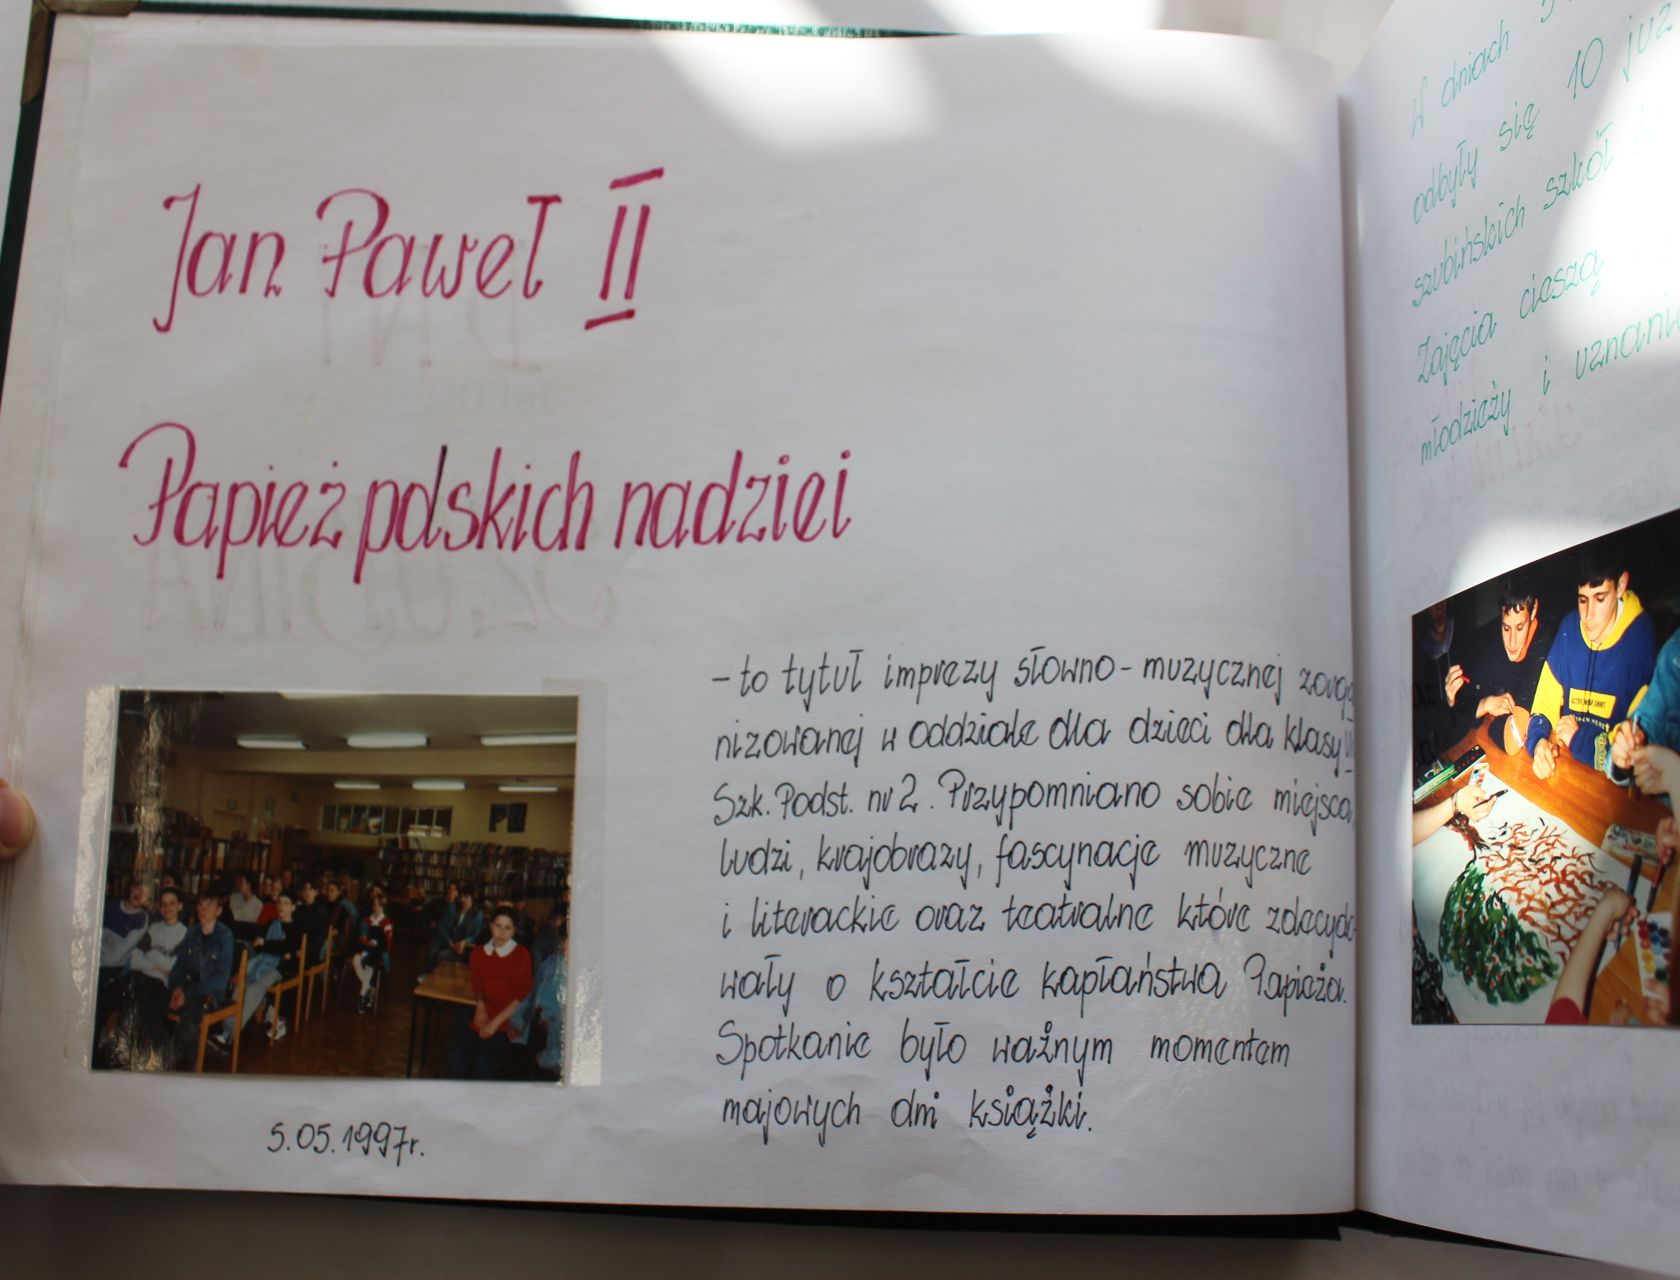 Jan Paweł II
Papież polskich nadziei
- to tytuł imprezy słowno - muzycznej zorga
nizowanej w oddziale dla dzieci dla klasy
Szk. Podst. nr 2. Przypomniano sobie miejsca,
ludzi, krajobrazy, fascynacje muzyczne
i literackie oraz teatralne które zdecydo-
wały o kształcie kapłaństwa Papieża.
Spotkanie było ważnym momentem
majowych dni książki.
5.05.1997r.
W dniach
odbyły się 10 już
szubińskich szkół
Zajęcia cieszą
młodzieży i uznani